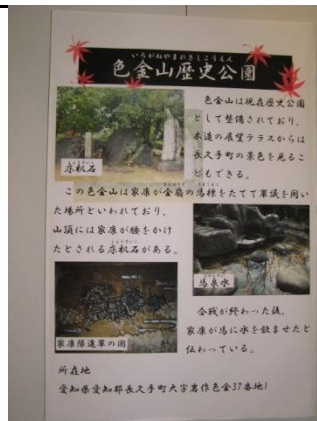 いろがねやまれきしこうえん
色金山歴史公園
色金山は現在歴史公園
として整備されており、
本道の展望テラスからは
長久手町の景色を見るこ
ともできる。
しょうぎいし
床机石
この色金山は家康が金扇の馬標をたてて軍議を開い
た場所といわれており、
山頂には家康が腰をかけ
たとされる床机石がある。
馬泉水
合戦が終わった後、
家康が馬に水を飲ませたと
伝わっている。
家康隊進軍の図
所在地
愛知県愛知郡長久手町大字岩作色金37番地1